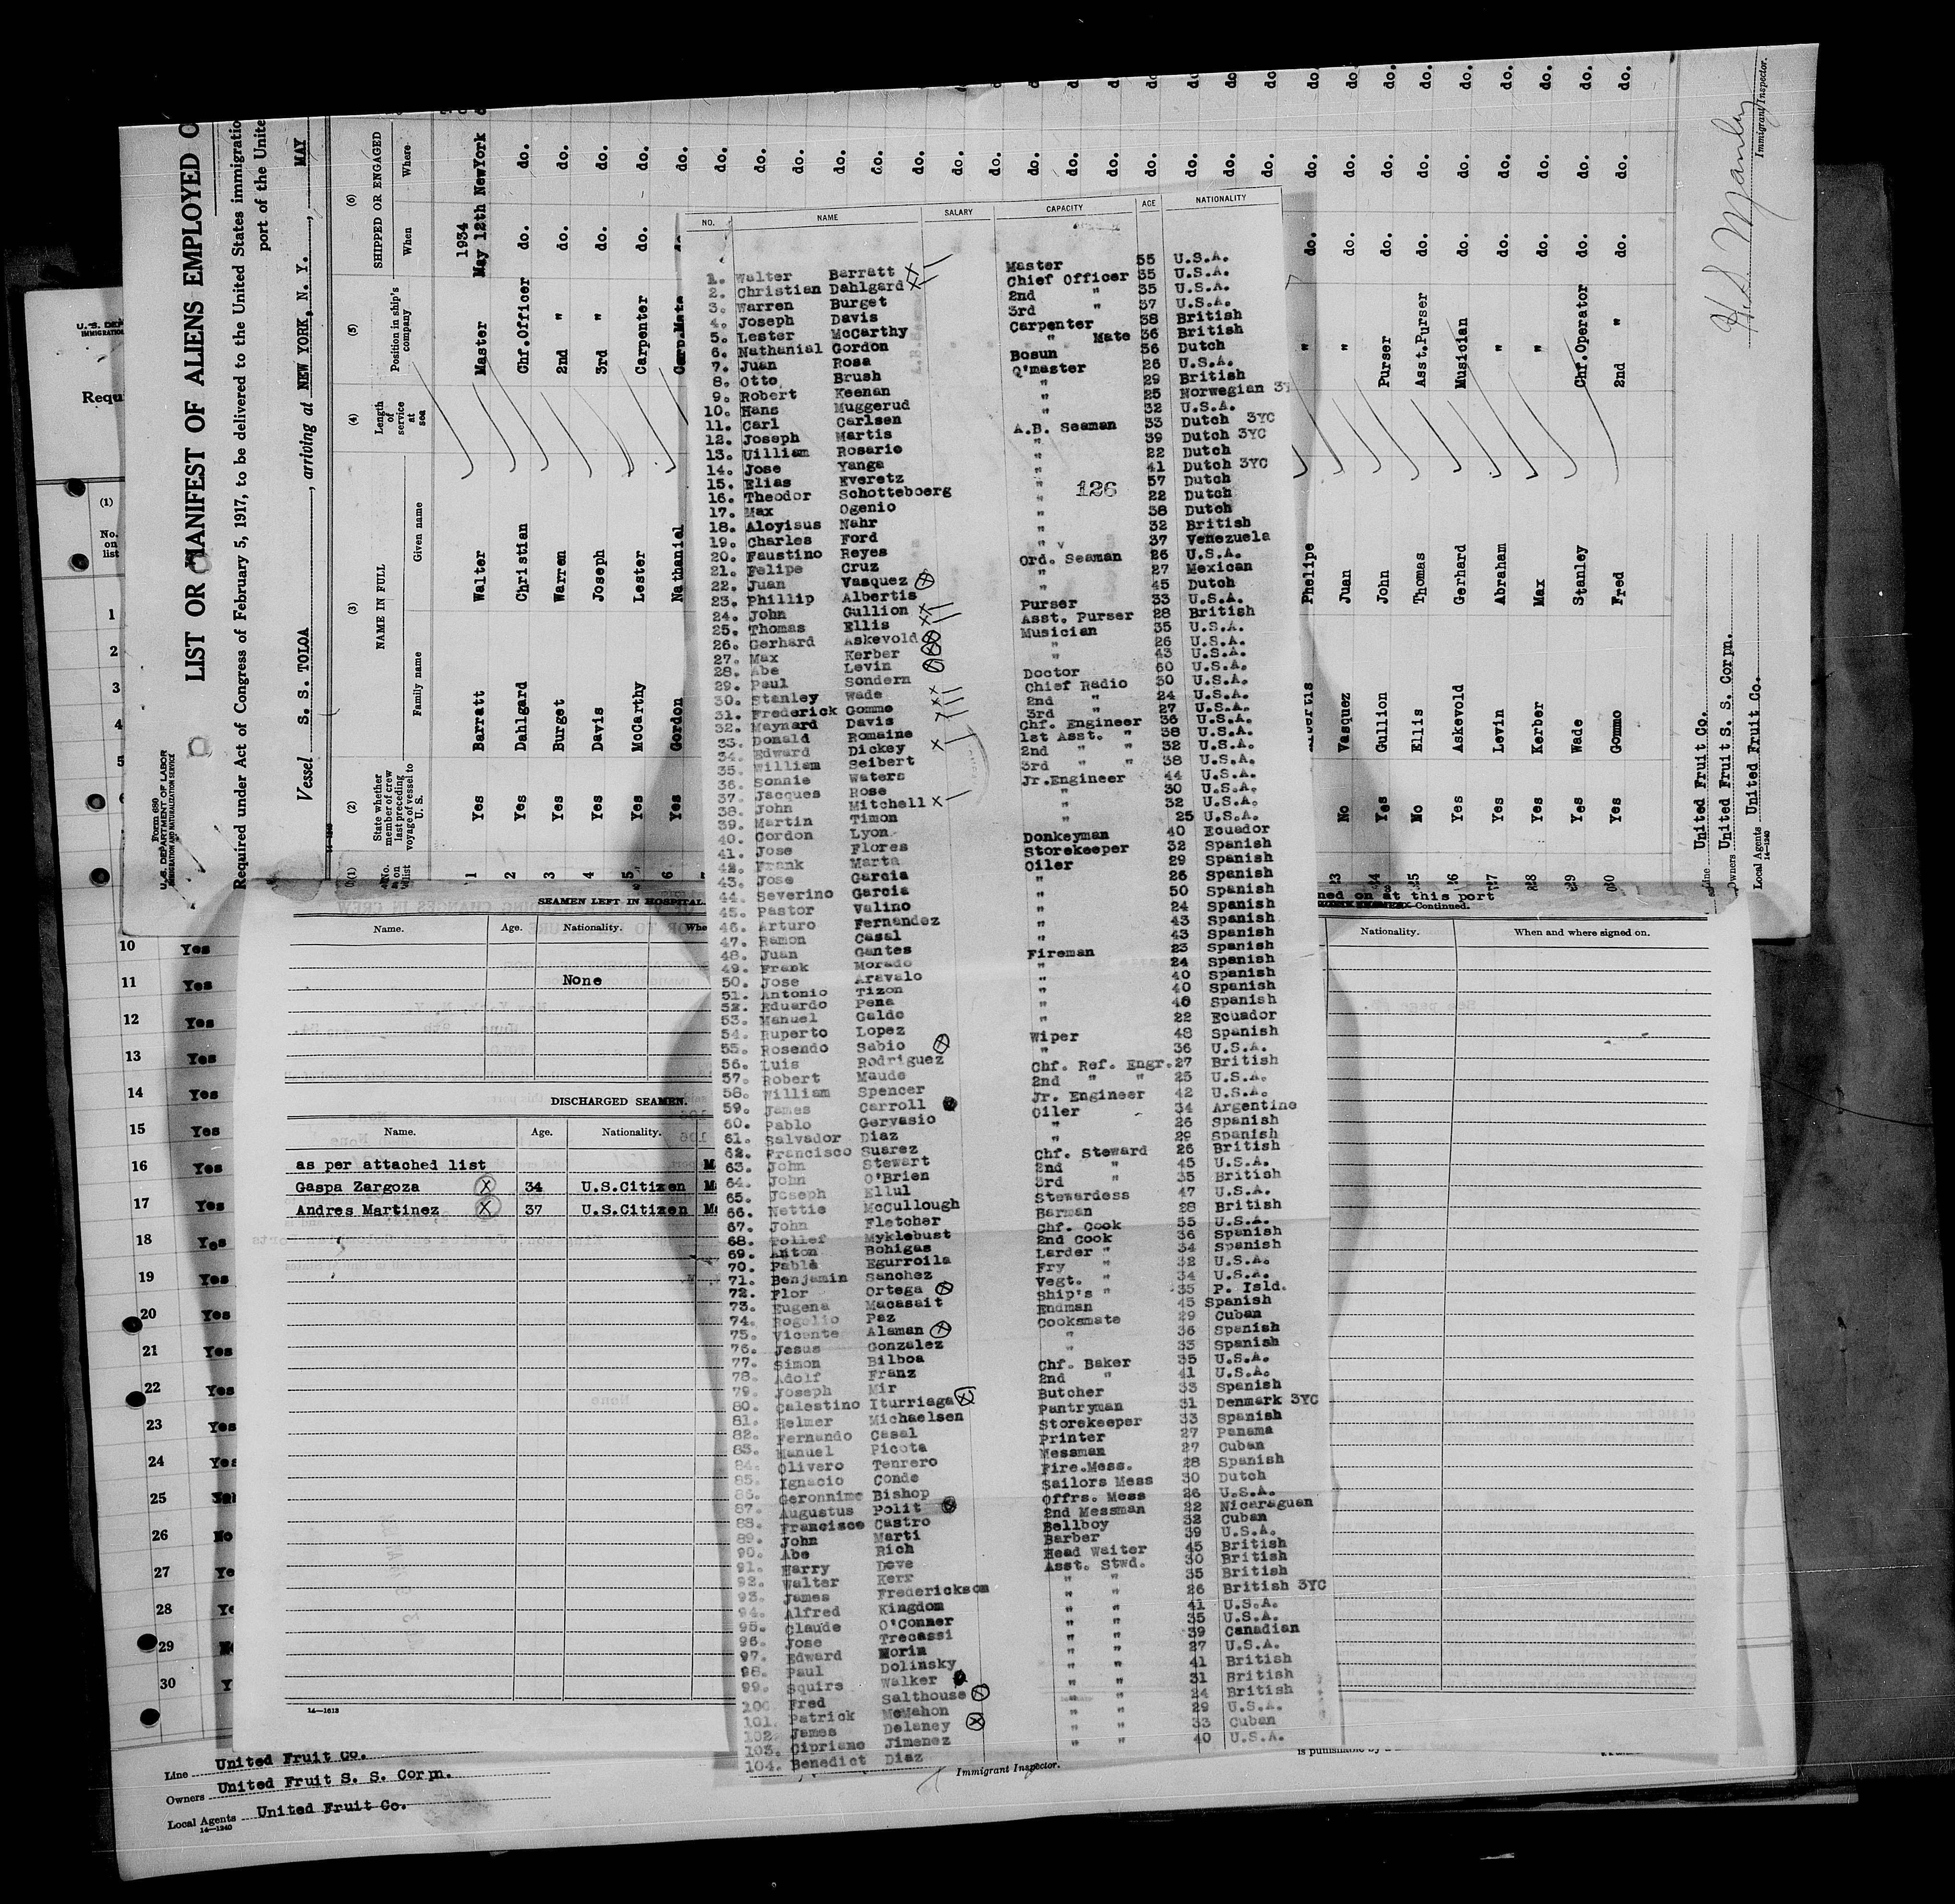 Form 680
U. S. DEPARTMENT OF LABOR
IMMIGRATION AND NATURALIZATION SERVICE
LIST OR MANIFEST OF ALIENS EMPLOYED O
Required under Act of Congress of February 5, 1917, to be delivered to the United States immigratio
port of the Unite
Vessel S. S. TOLOA, arriving at NEW YORK, N. Y., MAY
(1) No. on list
(2) State whether member of crew last preceding voyage of vessel to U. S.
(3) NAME IN FULL
Family name Given name
(4) Length of service at sea
(5) Position in ship's company
(6) SHIPPED OR ENGAGED
When Where
1934
1 Yes Barratt Walter Master May 12th NewYork
2 Yes Dahlgard Christian Chf.Officer do. do.
3 Yes Burget Warren 2nd " do. do.
4 Yes Davis Joseph 3rd " do. do.
5 Yes McCarthy Lester Carpenter do. do.
6 Yes Gordon Nathaniel Carp.Mate do.
Phelipe " do. do. do.
23 No Vasquez Juan " do. do. do.
24 Yes Gullion John Purser do. do. do.
25 No Ellis Thomas Asst.Purser do. do. do.
26 Yes Askevold Gerhard Musician do. do. do.
27 Yes Levin Abraham " do. do. do.
28 Yes Kerber Max " do. do. do.
29 Yes Wade Stanley Chf.Operator do. do. do.
30 Yes Gommo Fred 2nd " do. do. do.
Line United Fruit Co.
Owners United Fruit S. S. Corpn.
Local Agents United Fruit Co.
14—1240
H. S. Manley
Immigrant Inspector.
NO. NAME SALARY CAPACITY AGE NATIONALITY
1. Walter Barratt Master 55 U.S.A.
2. Christian Dahlgard Chief Officer 35 U.S.A.
3. Warren Burget 2nd " 35 U.S.A.
4. Joseph Davis 3rd " 37 U.S.A.
5. Lester McCarthy Carpenter 38 British
6. Nathanial Gordon " Mate 36 British
7. Juan Rosa Bosun 56 Dutch
8. Otto Brush Q'master 26 U.S.A.
9. Robert Keenan " 29 British
10. Hans Muggerud " 25 Norwegian 3Y
11. Carl Carlsen " 32 U.S.A.
12. Joseph Martis A.B. Seaman 33 Dutch 3YC
13. Uilliam Rosario " 39 Dutch 3YC
14. Jose Yanga " 22 Dutch
15. Elias Everetz " 41 Dutch 3YC
16. Theodor Schotteboerg " 57 Dutch
126
17. Max Ogenio " 22 Dutch
18. Aloyisus Nahr " 38 Dutch
19. Charles Ford " 32 British
20. Faustino Reyes " 37 Venezuela
21. Felipe Cruz Ord. Seaman 26 U.S.A.
22. Juan Vasquez " 27 Mexican
23. Phillip Albertis " 45 Dutch
24. John Gullion Purser 33 U.S.A.
25. Thomas Ellis Asst. Purser 28 British
26. Gerhard Askevold Musician 35 U.S.A.
27. Max Kerber " 26 U.S.A.
28. Abe Levin " 43 U.S.A.
29. Paul Sondern Doctor 60 U.S.A.
30. Stanley Wade Chief Radio 30 U.S.A.
31. Frederick Gomme 2nd " 24 U.S.A.
32. Maynard Davis 3rd " 27 U.S.A.
33. Donald Romaine Chf. Engineer 36 U.S.A.
34. Edward Dickey 1st Asst. " 38 U.S.A.
35. William Seibert 2nd " " 32 U.S.A.
36. Sonnie Waters 3rd " " 38 U.S.A.
37. Jacques Rose Jr.Engineer 44 U.S.A.
38. John Mitchell " 30 U.S.A.
39. Martin Timon " 32 U.S.A.
40. Gordon Lyon " 25 U.S.A.
41. Jose Flores Donkeyman 40 Ecuador
42. Frank Marta Storekeeper 32 Spanish
43. Jose Garcia Oiler 29 Spanish
44. Severino Garcia " 26 Spanish
45. Pastor Valino " 50 Spanish
46. Arturo Fernandez " 24 Spanish
47. Ramon Casal " 43 Spanish
48. Juan Gantes " 43 Spanish
49. Frank Morado Fireman 23 Spanish
50. Jose Aravalo " 24 Spanish
51. Antonio Tizon " 40 Spanish
52. Eduardo Pena " 40 Spanish
53. Manuel Galdo " 46 Spanish
54. Ruperto Lopez " 22 Ecuador
55. Rosendo Sabio Wiper 48 Spanish
56. Luis Rodriguez " 36 U.S.A.
57. Robert Maude Chf. Ref. Engr. 27 British
58. William Spencer 2nd " " 25 U.S.A.
59. James Carroll Jr. Engineer 42 U.S.A.
60. Pablo Gervasio Oiler 34 Argentine
61. Salvador Diaz " 26 Spanish
62. Francisco Suarez " 29 Spanish
63. John Stewart Chf. Steward 26 British
64. John O'Brien 2nd " 45 U.S.A.
65. Joseph Ellul 3rd " 35 British
66. Nettie McCullough Stewardess 47 U.S.A.
67. John Fletcher Barman 28 British
68. Tollef Myklebust Chf. Cook 55 U.S.A.
69. Anton Bohigas 2nd Cook 36 Spanish
70. Pable Egurroila Larder " 34 Spanish
71. Benjamin Sanchez Fry " 32 U.S.A.
72. Flor Ortega Vegt. " 34 U.S.A.
73. Eugena Macasait Ship's " 35 P. Isld.
74. Rogelio Paz Endman 45 Spanish
75. Vicente Alaman Cooksmate 29 Cuban
76. Jesus Gonzalez " 36 Spanish
77. Simon Bilboa " 33 Spanish
78. Adolf Franz Chf. Baker 35 U.S.A.
79. Joseph Mir 2nd " 41 U.S.A.
80. Calestino Iturriaga Butcher 33 Spanish
81. Helmer Michaelsen Pantryman 31 Denmark 3YC
82. Fernando Casal Storekeeper 33 Spanish
83. Manuel Picota Printer 27 Panama
84. Olivero Tenrero Messman 27 Cuban
85. Ignacio Conde Fire.Mess. 28 Spanish
86. Geronnimo Bishop Sailors Mess 30 Dutch
87. Augustus Polit Offrs. Mess 26 U.S.A.
88. Francisco Castro 2nd Messman 22 Nicaraguan
89. John Marti Bellboy 32 Cuban
90. Abe Rich Barber 39 U.S.A.
91. Harry Dove Head Waiter 45 British
92. Walter Kerr Asst. Stwd. 30 British
93. James Frederickson " " 35 British
94. Alfred Kingdom " " 26 British 3YC
95. Claude O'Conner " " 41 U.S.A.
96. Jose Trecassi " " 35 U.S.A.
97. Edward Morin " " 39 Canadian
98. Paul Dolinsky " " 27 U.S.A.
99. Squire Walker " " 41 British
100 Fred Salthouse " " 31 British
101. Patrick McMahon " " 24 British
102. James Delaney " " 29 U.S.A.
103. Cipriano Jimenez " " 33 Cuban
104. Benedict Diaz " " 40 U.S.A.
Immigrant Inspector.
SEAMEN LEFT IN HOSPITAL.
Name. Age. Nationality. Whe
None
DISCHARGED SEAMEN.
Name. Age. Nationality.
as per attached list
Gaspa Zargoza 34 U.S.Citizen
Andres Martinez 37 U.S.Citizen
14—1613
ned on at this port
Continued.
Nationality. When and where signed on.
U. S. DE
IMMIGRATION
Requ
(1)
No. on list
1
2
3
4
5
6
10 Yes
11 Yes
12 Yes
13 Yes
14 Yes
15 Yes
16 Yes
17 Yes
18 Yes
19 Yes
20 Yes
21 Yes
22 Yes
23 Yes
24 Yes
25
26 No
27 Ye
28 Ye
29
30 Y
Line United Fruit Co.
Owners United Fruit S. S. Corpn.
Local Agents United Fruit Co.
14—1240